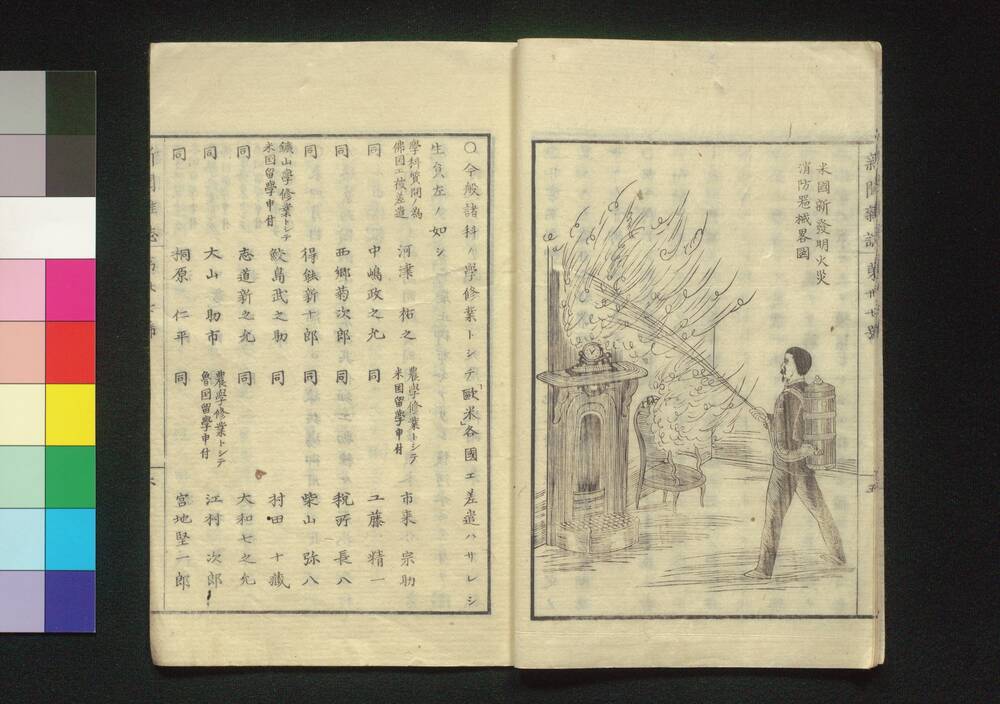 新聞雜誌 第卅七號
米國新發明火災
消防器械畧図
五
○今般諸科ノ學修業トシテ「歐米」各國エ差遣ハサレシ
生負左ノ如シ
學科質問ノ為
佛国エ被差遣
河津祐之
農學修業トシテ
米国留學申付
市来宗助
同 中嶋政之允
同 工藤精一
同 西郷菊次郎
同 税所長八
同 得能新十郎
同 柴山弥八
鑛山學修業トシテ
米国留學申付
鮫島武之助
同 村田十蔵
同 志道新之允
同 大和七之允
同 大山助市
農學修業トシテ
魯国留學申付
江村次郎
同 桐原仁平
同 宮地堅一郎